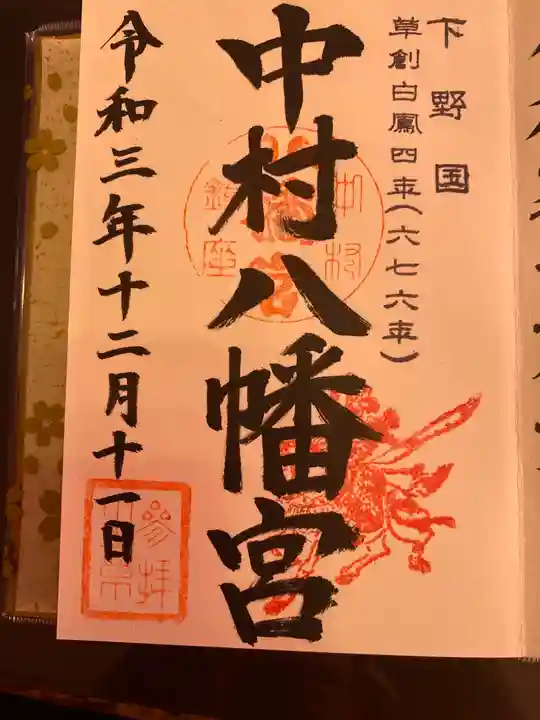 下野国
草創白鳳四年(六七六年)
中村八幡宮
中村
鎮座
令和三年十二月十一日
参拝